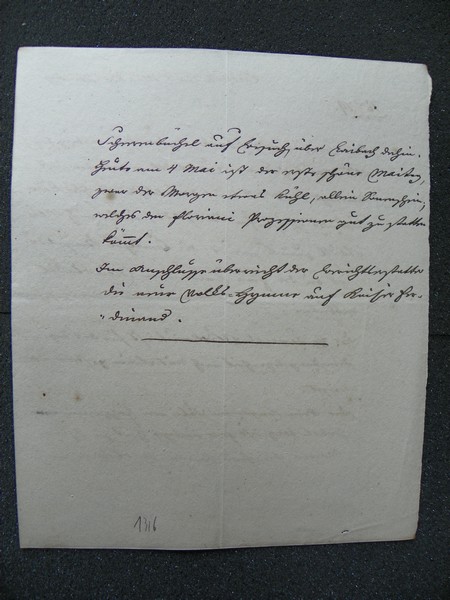 Scherenbüchel auf Besuch, über Laibach dahin.
Heute am 4 Mai ist der erste schöne Maitag,
zwar der Morgen etwas kühl, allein Sonnenschein,
welches den Floriani Prozessionen gut zu statten
kömmt.
Im Anschlusse überreicht der Berichterstatter
die neue Volks-Hymne auf Kaiser Fer-
dinand.
1316